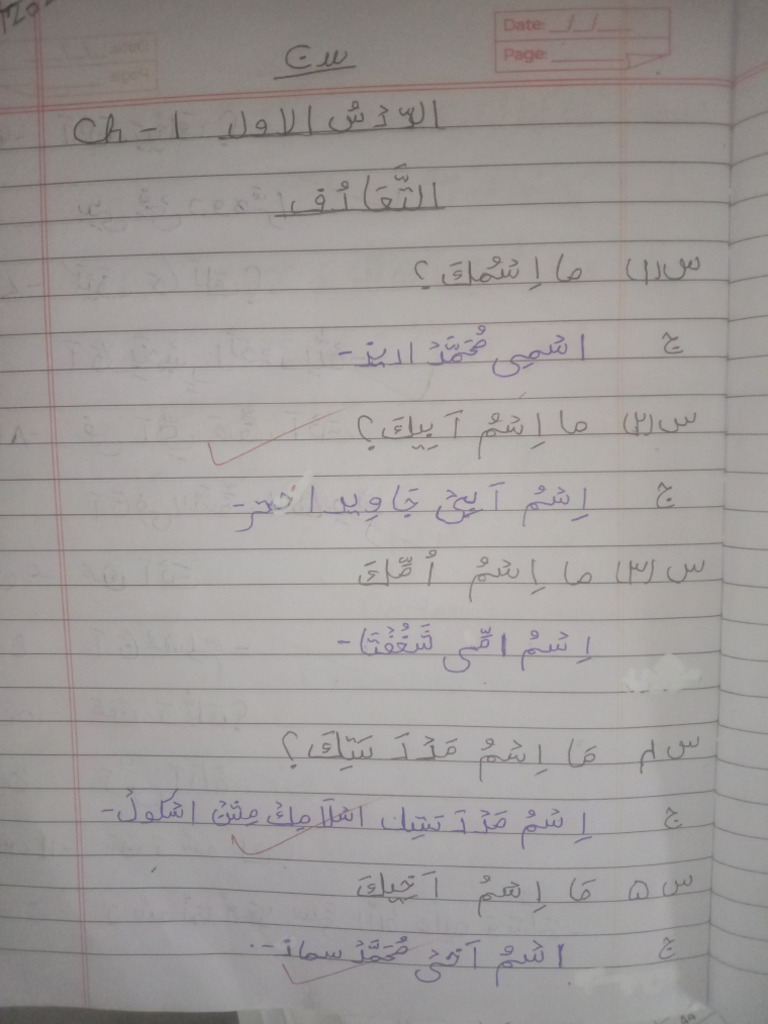 Date: __/__/____
Page: ________
س ج
Ch - 1 الدّرْسُ الاول
التَّعَارُف
س(۱) ما اِسْمُكَ؟
ج اسْمِی مُحَمَّدْ
س(۲) ما اِسْمُ اَبِيكَ؟
ج اِسْمُ اَبِیْ جَاوِید اختر-
س(۳) ما اِسْمُ اُمِّكَ
اِسْمُ امِّی شَگُفْتَا-
س۴ مَا اِسْمُ مَدْرَسَتِكَ؟
ج اِسْمُ مَدْرَستِی اسْلَامِكْ مِشَنْ اسْكُولْ-
س ۵ مَا اِسْمُ اَخِيكَ
ج اسْمُ اَخِیْ مُحَمَّدْ